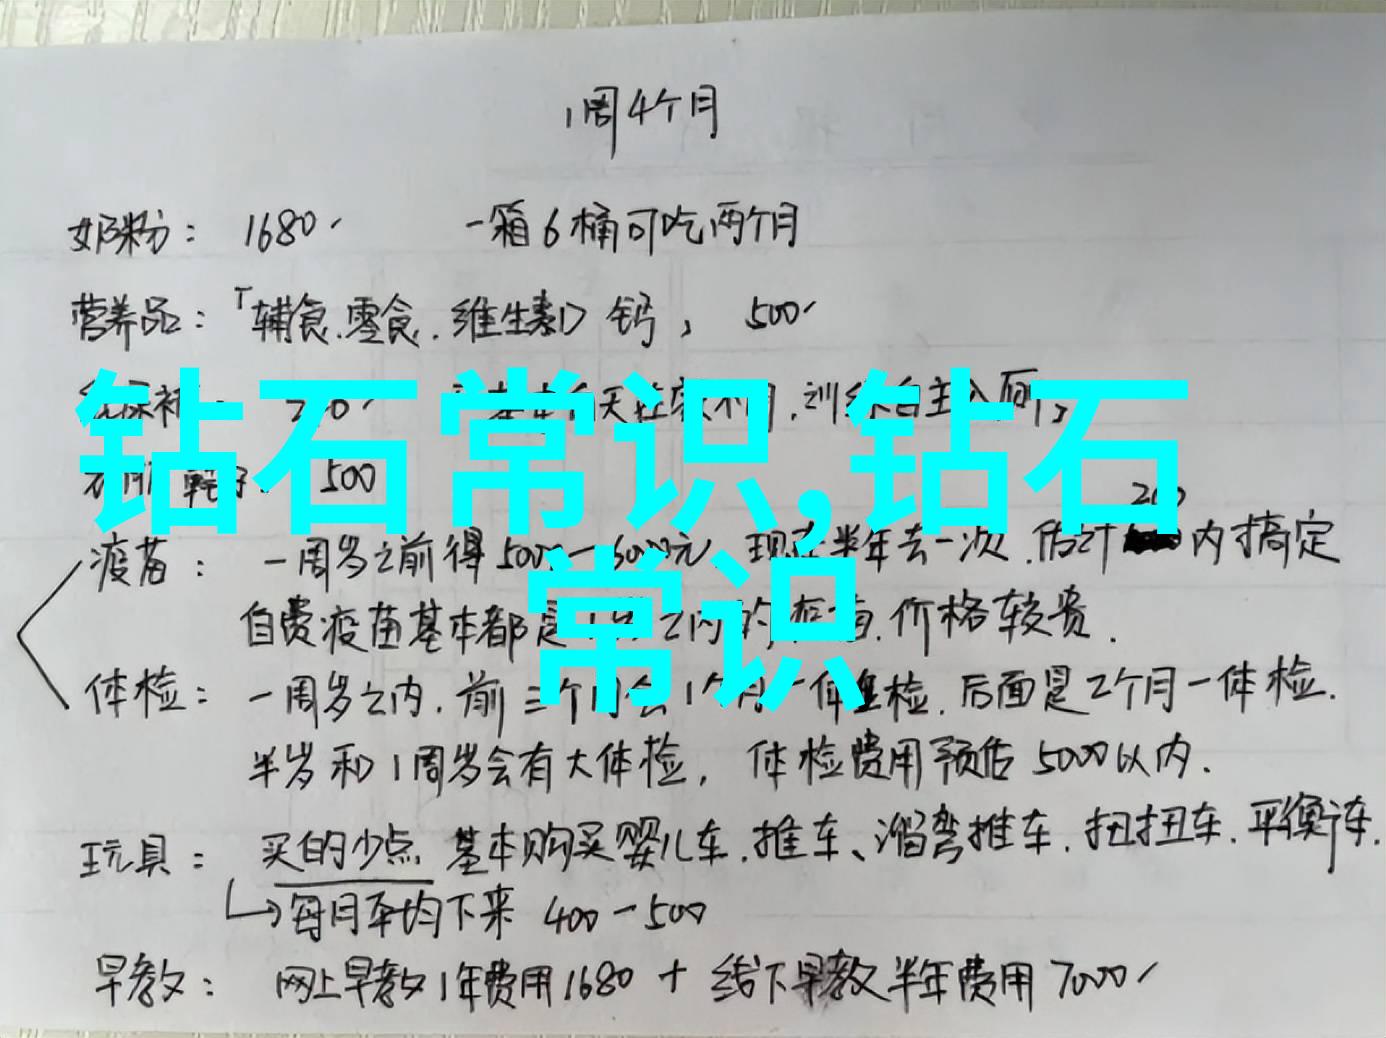 1周4个月
奶粉： 1680 一箱6桶可吃两个月
营养品：「辅食.零食.维生素D 钙, 500
钻石常识,钻石
常识
500
疫苗： 一周岁之前得5000-6000元 现在半年去一次.估计200内搞定
自费疫苗基本都是 之内的疫苗.价格较贵.
体检： 一周岁之内.前三个月会1个月一体检.后面是2个月一体检.
半岁和1周岁会有大体检, 体检费用预估5000以内.
玩具： 买的少点 基本购买婴儿车.推车、溜弯推车.扭扭车.平衡车.
每月平均下来 400-500
早教： 网上早教1年费用1680 + 线下早教半年费用7000